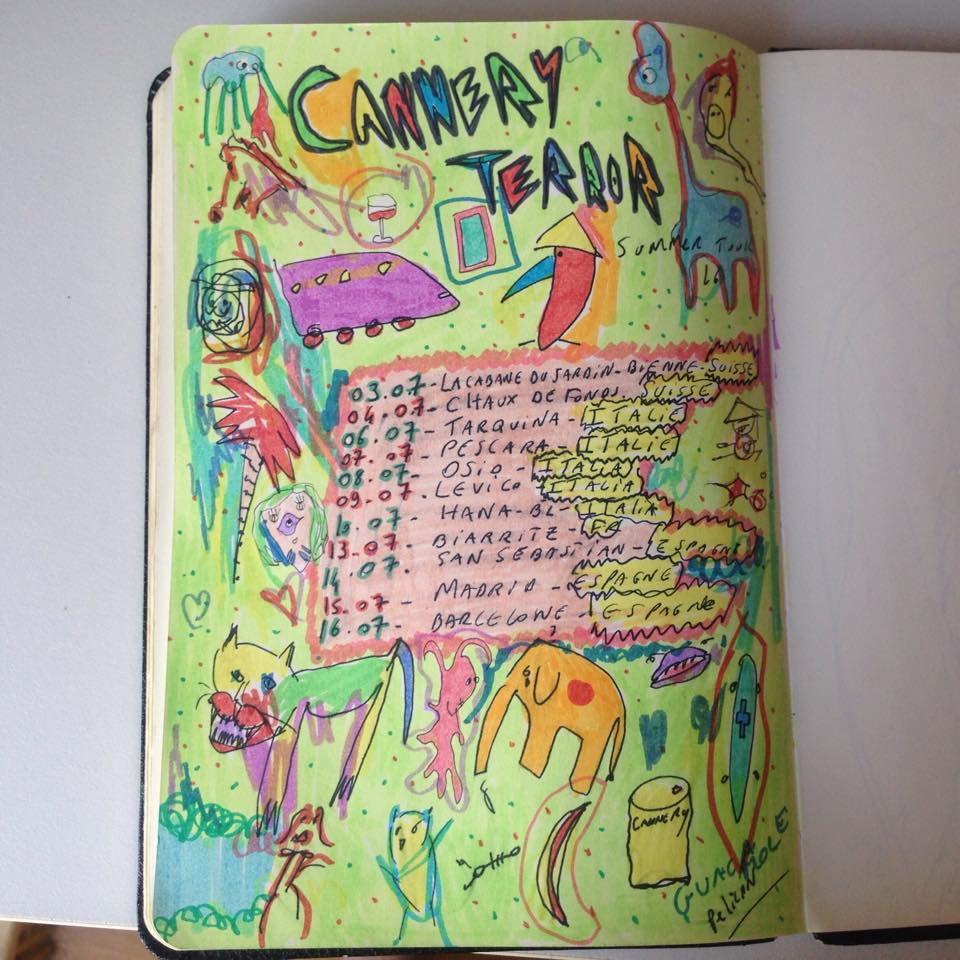 CANNERY
TERROR
SUMMER TOUR
16
03.07 - LA CABANE DU JARDIN - BIENNE - SUISSE
04.07 - CHAUX DE FONDS SUISSE
06.07 - TARQUINA - ITALIE
07.07 - PESCARA - ITALIE
08.07 - OSIO - ITALIA
09.07 - LEVICO ITALIA
10.07 - HANA-BI - ITALIA
13.07 - BIARRITZ - FR
14.07 - SAN SEBASTIAN - ESPAGNE
15.07 - MADRID - ESPAGNE
16.07 - BARCELONE - ESPAGNE
CANNERY
GUACAMOLE